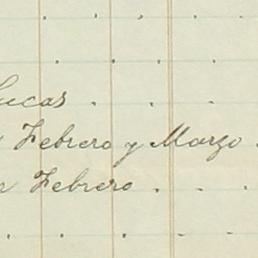 Lucas
Febrero y Marzo
Febrero